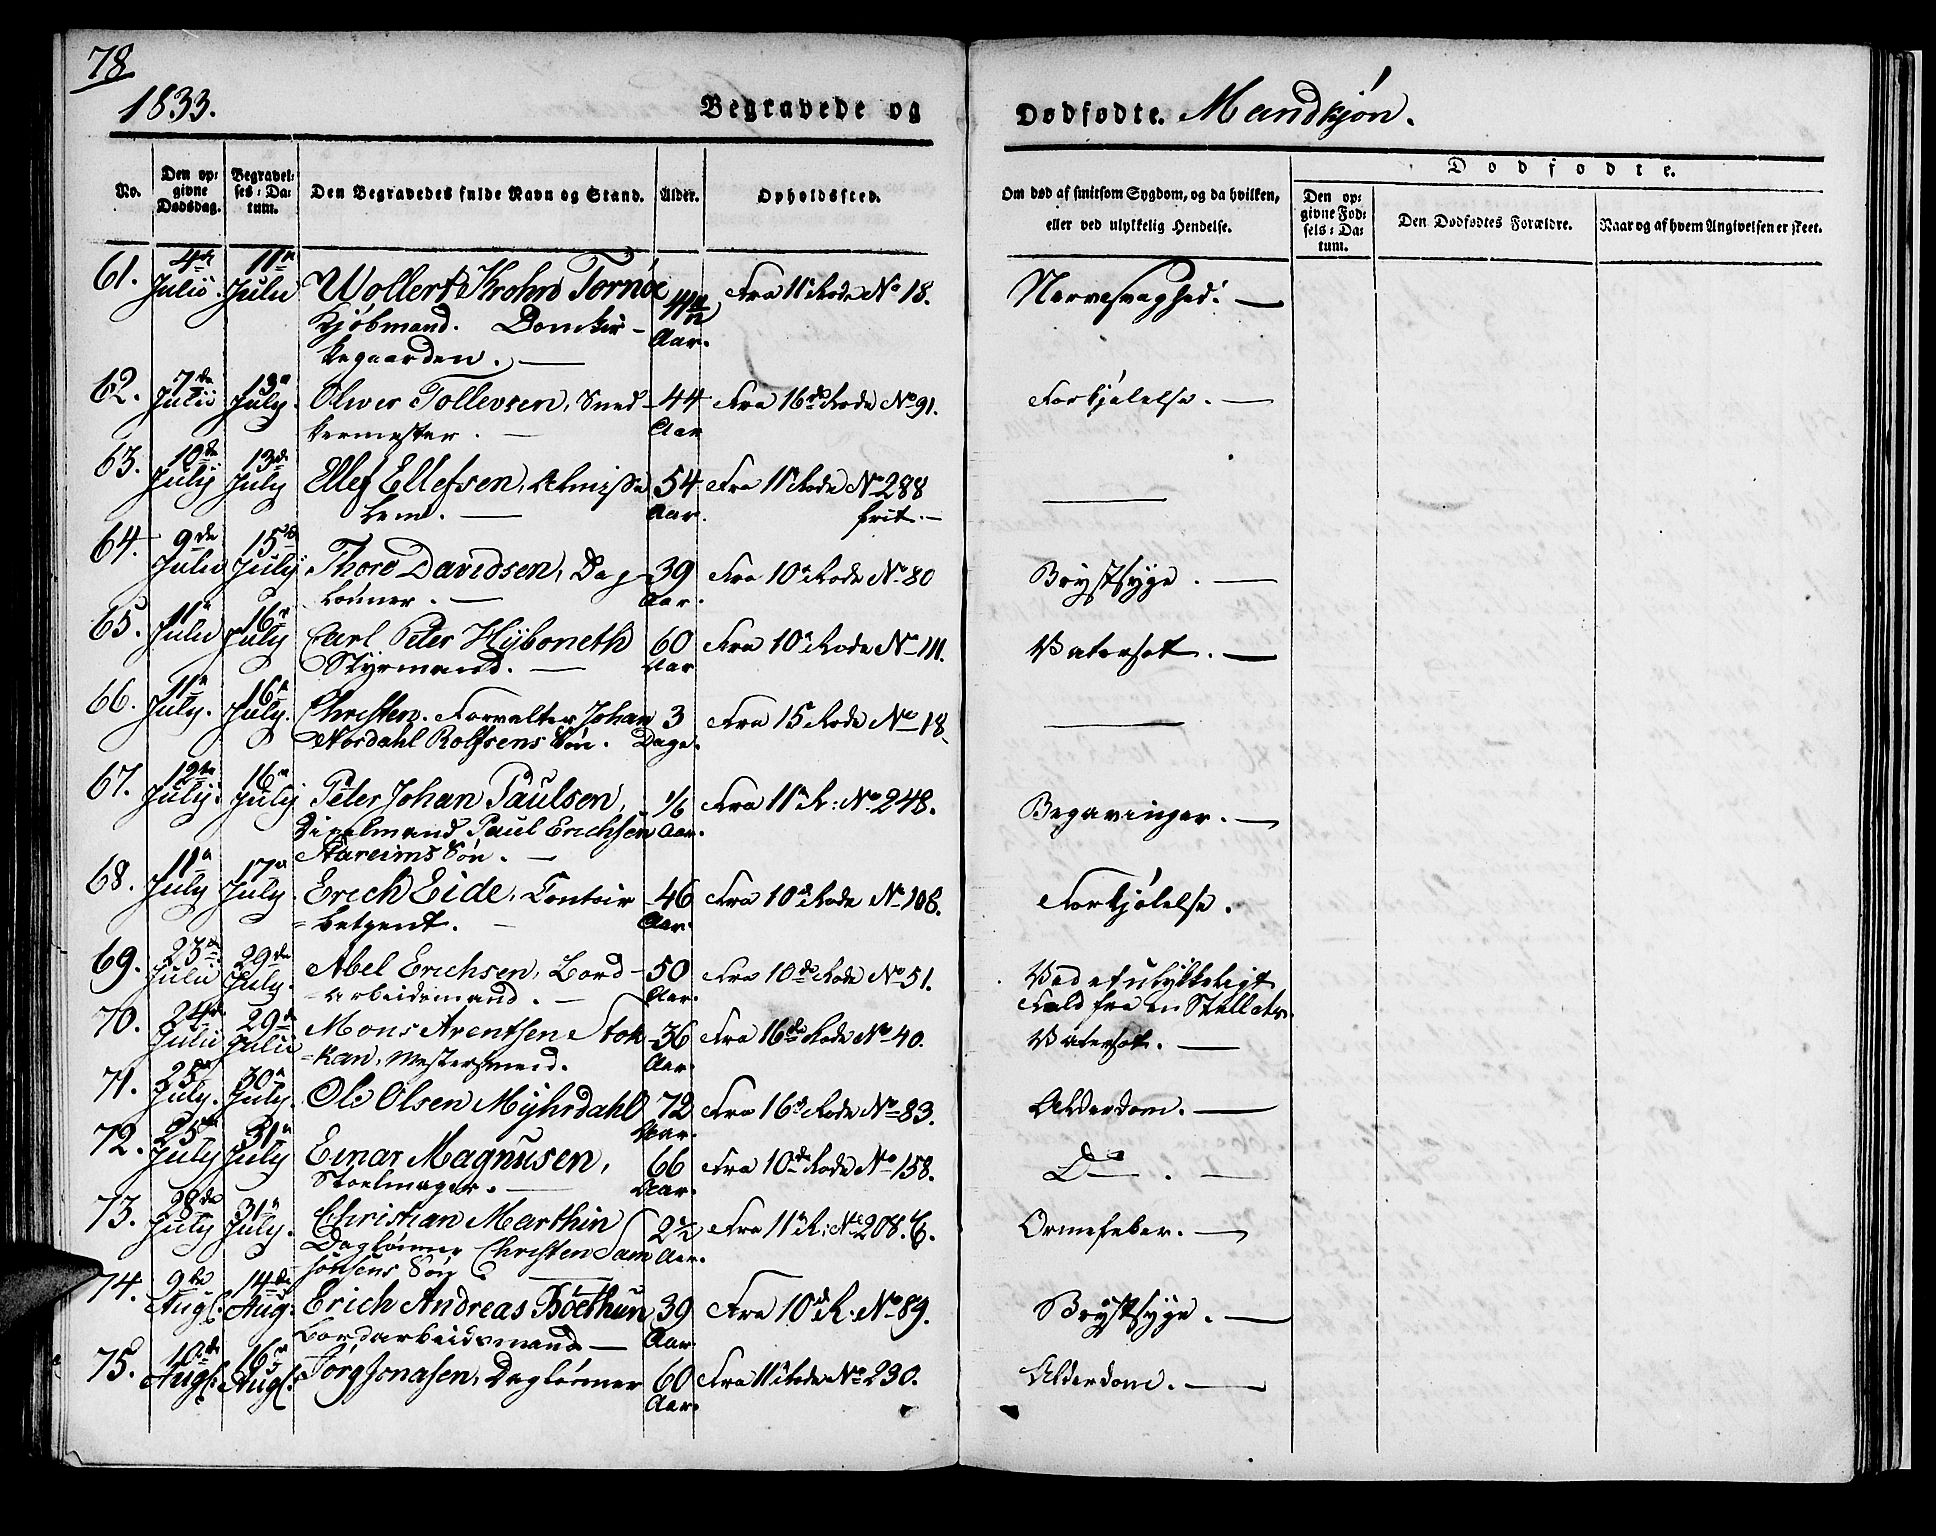 78
1833.
Begravede og Dødfødte. Mandkjøn.
No.
Den op-
givne
Dødsdag.
Begravel-
ses-Da-
tum.
Den Begravedes fulde Navn og Stand.
Alder.
Opholdssted.
Om død af smitsom Sygdom, og da hvilken,
eller ved ulykkelig Hendelse.
Dødfødte.
Den op-
givne Fød-
sels-Da-
tum.
Den Dødfødtes Forældre.
Naar og af hvem Angivelsen er skeet.
61. 4de Julii. 11te Julii Wollert Krohn Tornøe Fra 11te Rode No 18. Nervesvaghed.
Kjøbmand. Aar.
62. 7de Julii 13de July. Oliver Tollevsen, Sned- 44 Fra 16de Rode No 91. Forkjølelse.
kermester. Aar
63. 10de July 13de July Ellef Ellefsen, Almisse 54 Fra 11te Rode No 288
Lem. Aar. frit.
64. 9de Julii 15de July Thore Davidsen, Dag- 39 Fra 10de Rode No 80 Brystsyge.
lønner. Aar.
65. 11te Julii 16de July Carl Peter Hyboneth 60 Fra 10de Rode No 111. Vatersot.
Styrmand. Aar
66. 11te July. 16de July. Christen. Forvalter Johan 3 Fra 15de Rode No 18.
Nordahl Rolfsens Søn. Dage.
67. 12te July. 16de July Peter Johan Paulsen, 1/6 Fra 11te R: No 248. Begavinger.
Paul Erichsen Aar.
Stareims Søn.
68. 11te July 17de July. Erich Eide, Contoir 46 Fra 10de Rode No 108. Forkjølelse.
betjent. Aar.
69. 23de Julii 29de July. Abel Erichsen, Bord- 50 Fra 10de Rode No 51. Ved et ulykkeligt
arbeidsmand. Aar. Fald fra en
70. 24de Julii 29de Julii Mons Arentsen Stok- 36 Fra 16de Rode No 40. Vatersot.
kan, Mestersmed. Aar.
71. 25de July. 30te July. Ole Olsen Myhrdahl 72 Fra 16de Rode No 83. Alderdom.
Aar.
72. 25de July 31te July Einar Magnusen, 66 Fra 10de Rode No 158. Do.
Stoelmager. Aar.
73. 28de July 31te July. Christian Marthin 2½ Fra 11te R: No 208. C. Ormefeber.
Daglønner Christen Sam Aar.
sonsens Søn
74. 9de Augs. 14de Augs. Erich Andreas Böethun 39 Fra 10de R. No 89. Brystsyge.
Bordarbeidsmand Aar
75. 10de Augs. 16de Augs. Jørg Jonasen, Daglønner 60 Fra 11te Rode No 230. Alderdom.
Aar.